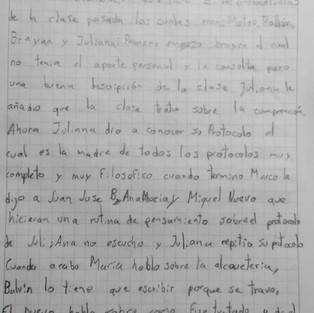 de la clase pasada los cuales eran Mateo, Balbin,
Brayan y Juliana; Primero empezo brayan el cual
no tenia el aporte personal y la consulta pero
una buena descripción de la clase juliana le
añadio que la clase trato sobre la comprención.
Ahora Julianna dio a conocer su Protocolo el
cual es la madre de todos los protocolos muy
completo y muy filosofico cuando termino Marco le
dijo a Juan Jose B, AnaMaria y Miguel Nuevo que
hicieran una rutina de pensamiento sobre el protocolo
de Juli, Ana no escucho y Juliana repitio su protocolo
Cuando acabo Maria hablo sobre la alcaueteria,
Balvin lo tiene que escribir porque se travo,
El nuevo hablo sobre como fue tratado